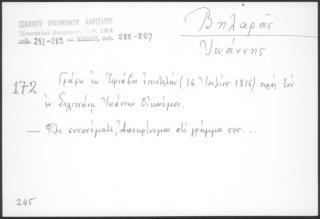 ΙΩΑΝΝΟΥ ΟΙΚΟΝΟΜΟΥ ΛΑΡΙΣΑΙΟΥ
"Επιστολαί Διαφόρων", Αθ. 1964
σελ. 281-282 σελ. 288-289
Βηλαράς
Ιωάννης
172 Γράφει εκ Τυρνάβου επιστολήν (16 Ιουλίου 1816) προς τον
εν Σελιτσάνη Ιωάννην Οικονόμου.
— Φίλε συνονόματε, Αποκρίνομαι στο γράμμα σου...
245